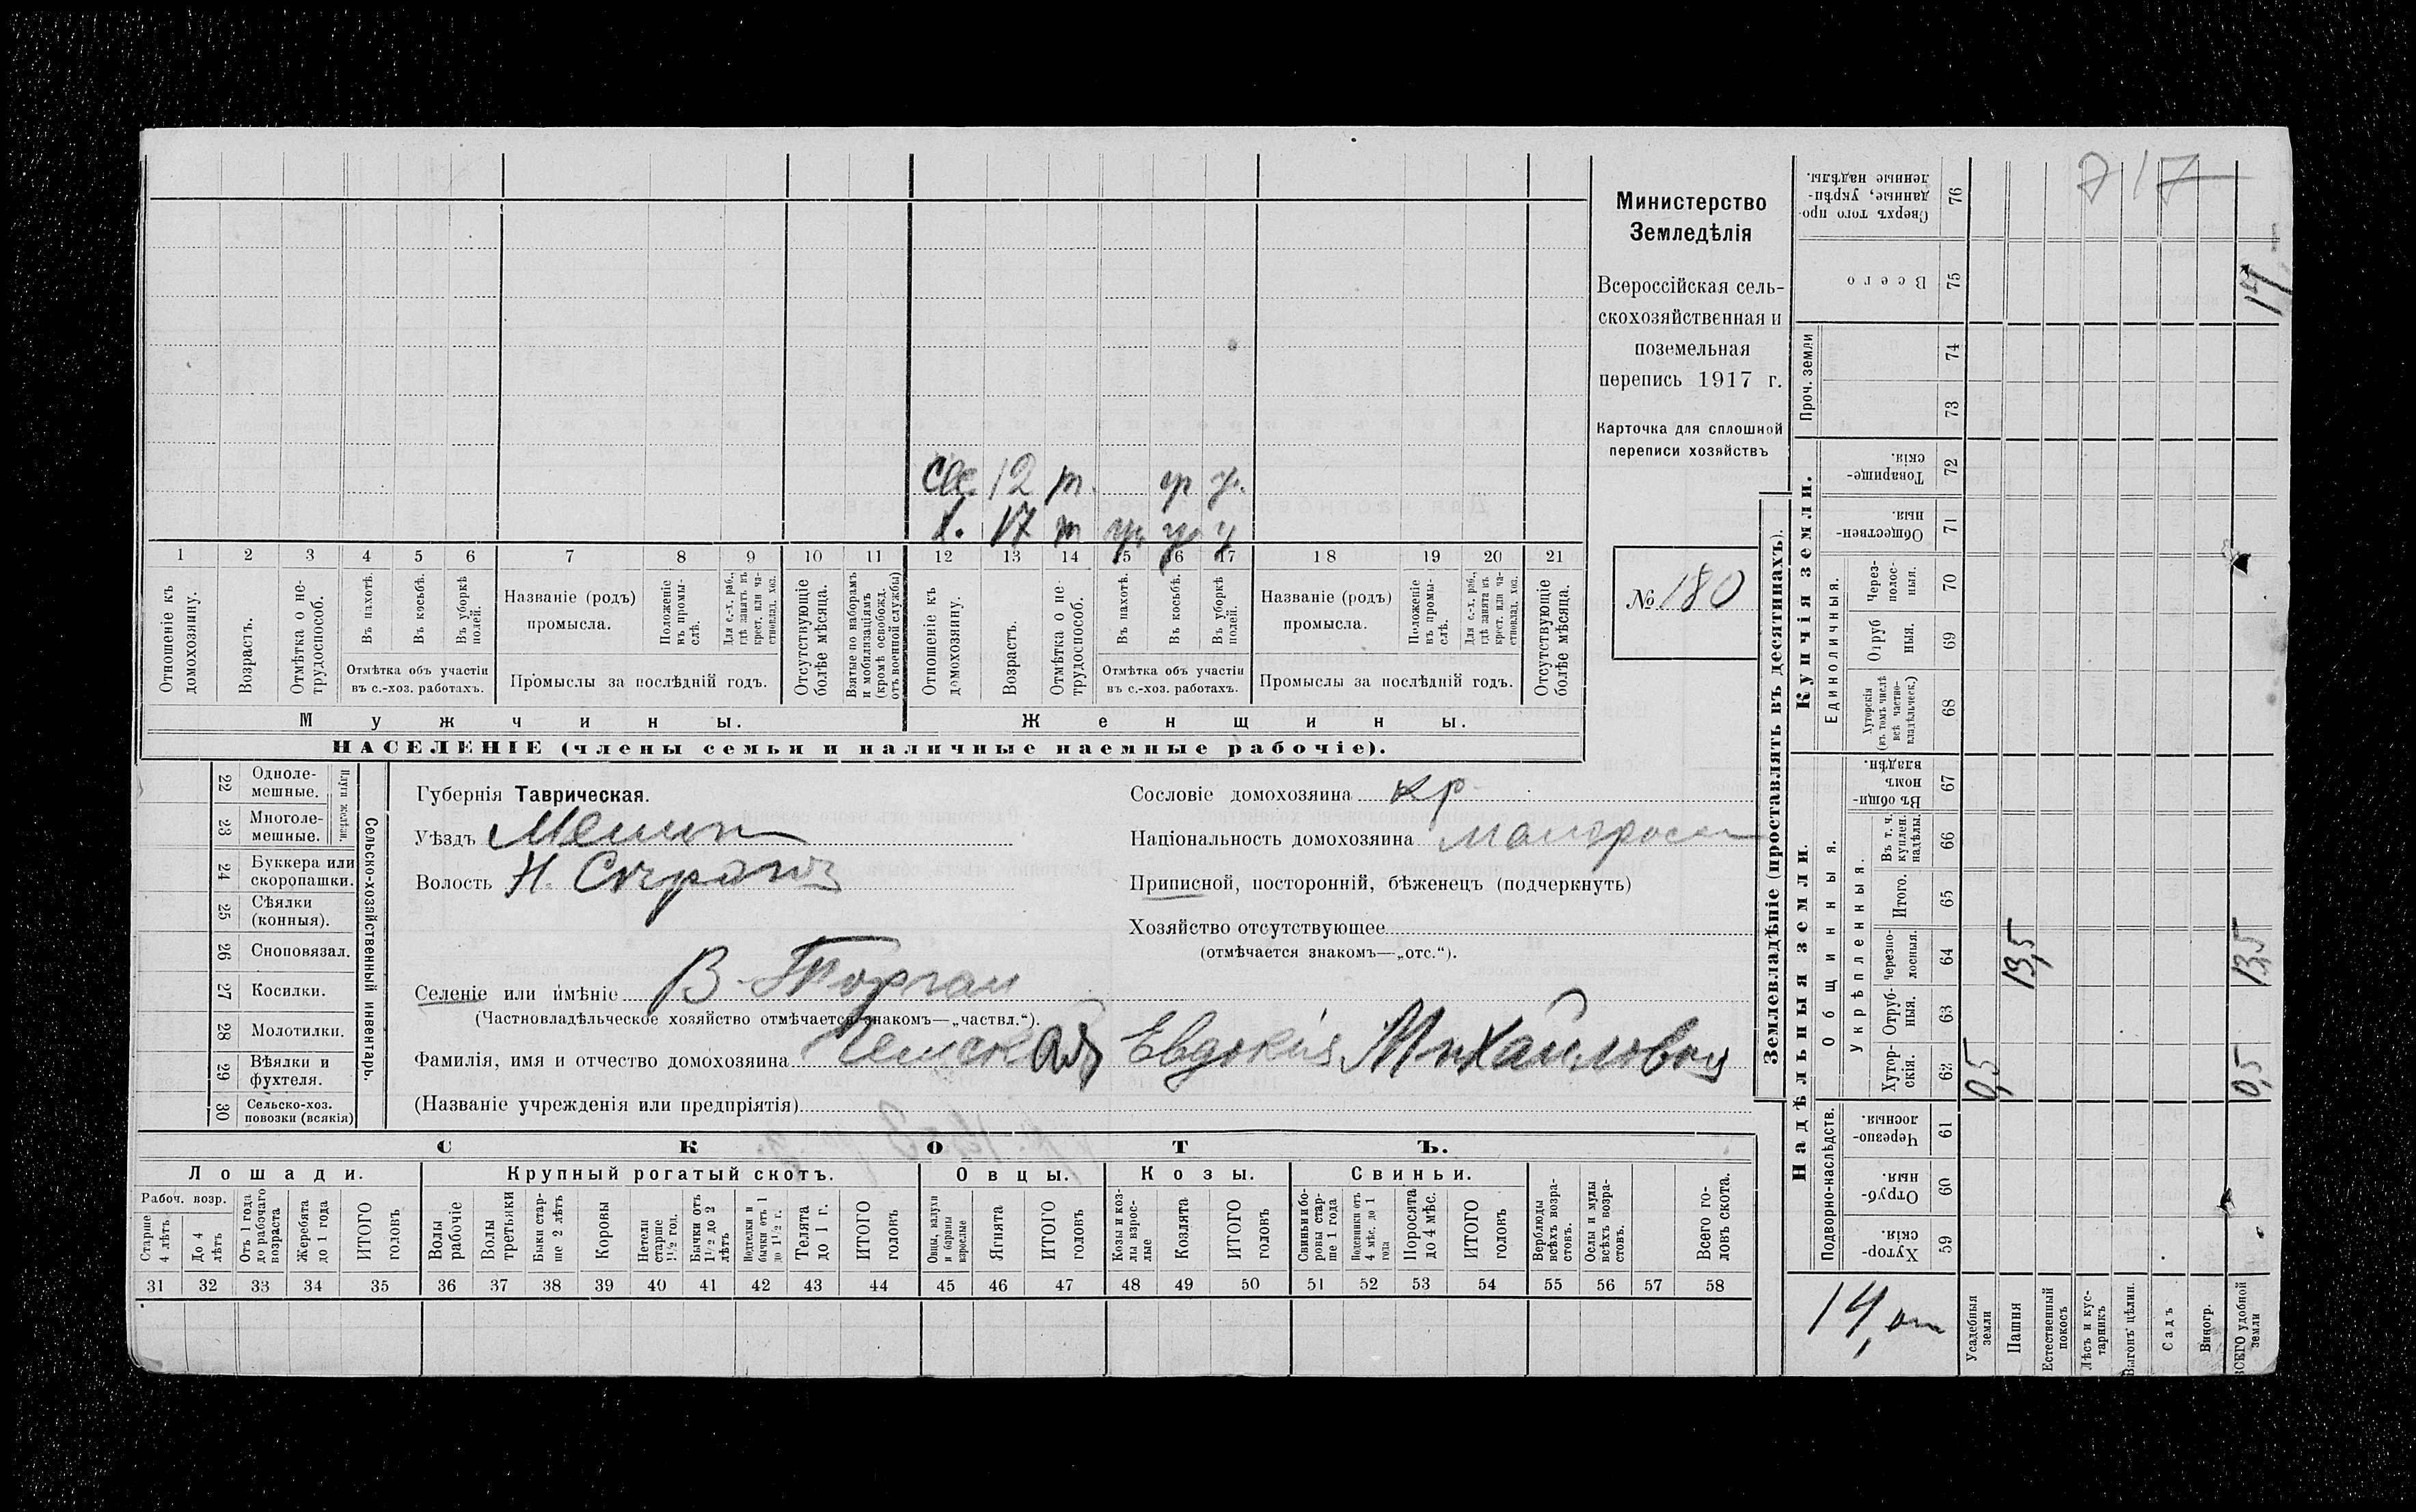 717
Министерство
Земледѣлія
Всероссійская сель-
скохозяйственная и
поземельная
перепись 1917 г.
Карточка для сплошной
переписи хозяйствъ
№ 180
12
17
1 2 3 4 5 6 7 8 9 10 11 12 13 14 15 16 17 18 19 20 21
Отношеніе къ домохозяину.
Возрастъ.
Отмѣтка о не-трудоспособ.
Въ пахотѣ.
Въ косьбѣ.
Въ уборкѣ полей.
Отмѣтка объ участіи
въ с.-хоз. работахъ.
Названіе (родъ)
промысла.
Положеніе въ промы-слѣ.
Для с.-х. раб., гдѣ занятъ въ крест. или ча-стновлад. хоз.
Промыслы за послѣдній годъ.
Отсутствующіе болѣе мѣсяца.
Взятые по наборамъ и мобилизаціямъ (кромѣ освобожд. отъ военной службы)
Отношеніе къ домохозяину.
Возрастъ.
Отмѣтка о не-трудоспособ.
Въ пахотѣ.
Въ косьбѣ.
Въ уборкѣ полей.
Отмѣтка объ участіи
въ с.-хоз. работахъ.
Названіе (родъ)
промысла.
Положеніе въ промы-слѣ.
Для с.-х. раб., гдѣ занята въ крест. или ча-стновлад. хоз.
Промыслы за послѣдній годъ.
Отсутствующіе болѣе мѣсяца.
Мужчины.
Женщины.
НАСЕЛЕНІЕ (члены семьи и наличные наемные рабочіе).
22 Одноле-мешные.
23 Многоле-мешные.
24 Буккера или скоропашки.
25 Сѣялки (конныя).
26 Сноповязал.
27 Косилки.
28 Молотилки.
29 Вѣялки и фухтеля.
30 Сельско-хоз. повозки (всякія)
Сельско-хозяйственный инвентарь.
Губернія Таврическая.
Уѣздъ Мелит
Волость Н. Сѣрагоз
Селеніе или имѣніе В. Торгаи
(Частновладѣльческое хозяйство отмѣчается знакомъ—„частвл.“).
Фамилія, имя и отчество домохозяина Евдокія Михайловна
(Названіе учрежденія или предпріятія)
Сословіе домохозяина кр.
Національность домохозяина малорос
Приписной, посторонній, бѣженецъ (подчеркнуть)
Хозяйство отсутствующее
(отмѣчается знакомъ—„отс.“).
СКОТЪ.
Лошади. Крупный рогатый скотъ. Овцы. Козы. Свиньи.
Рабоч. возр.
Старше 4 лѣтъ
До 4 лѣтъ
Отъ 1 года до рабочаго возраста
Жеребята до 1 года
ИТОГО головъ
Волы рабочіе
Волы третьяки
Быки стар-ше 2 лѣтъ
Коровы
Нетели старше 1½ год.
Бычки отъ 1½ до 2 лѣтъ
Подтелки и бычки отъ 1 до 1½ г.
Телята до 1 г.
ИТОГО головъ
Овцы, валухи и бараны взрослые
Ягнята
ИТОГО головъ
Козы и коз-лы взрос-лые
Козлята
ИТОГО головъ
Свиньи и бо-ровы стар-ше 1 года
Подсвинки отъ 4 мѣс. до 1 года
Поросята до 4 мѣс.
ИТОГО головъ
Верблюды всѣхъ возра-стовъ.
Ослы и мулы всѣхъ возра-стовъ.
Всего го-ловъ скота.
31 32 33 34 35 36 37 38 39 40 41 42 43 44 45 46 47 48 49 50 51 52 53 54 55 56 57 58
Землевладѣніе (проставлять въ десятинахъ).
Купчія земли.
Надѣльныя земли.
Сверхъ того про-данные, укрѣп-ленные надѣлы. 76
Всего 75 14
Проч. земли
74
73
Товарище-скія. 72
Обществен-ныя. 71
Единоличныя.
Черезполос-ныя. 70
Отруб ныя. 69
Хуторскія (въ томъ числѣ всѣ частно-владѣльческ.) 68
Общинныя.
Въ общи-номъ владѣн. 67
Укрѣпленныя.
Въ т. ч. куплен. надѣлы. 66
Итого. 65
Черезпо-лосныя. 64 13,5 13,5
Отруб-ныя. 63
Хутор-скія. 62 0,5 0,5
Подворно-наслѣдств.
Черезпо-лосныя. 61
Отруб-ныя. 60
Хутор-скія. 59
Усадебныя земли
Пашня
Естественный покосъ
Лѣсъ и кус-тарникъ
Выгонъ цѣлин.
Садъ
Виногр.
ВСЕГО удобной земли